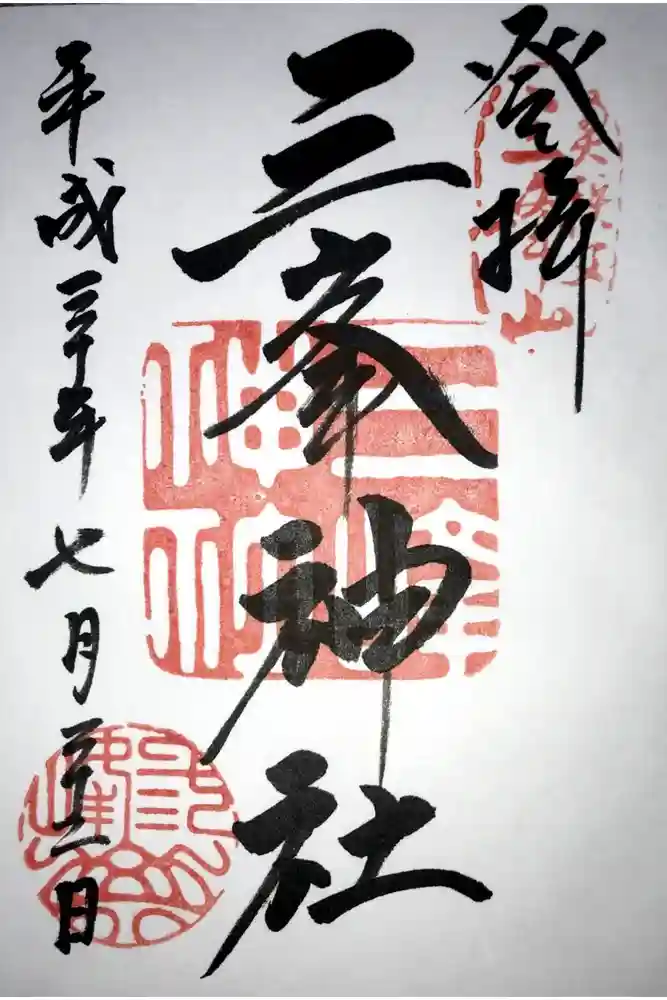 登拝
三峯神社
平成三十年七月二十二日
三峯神社